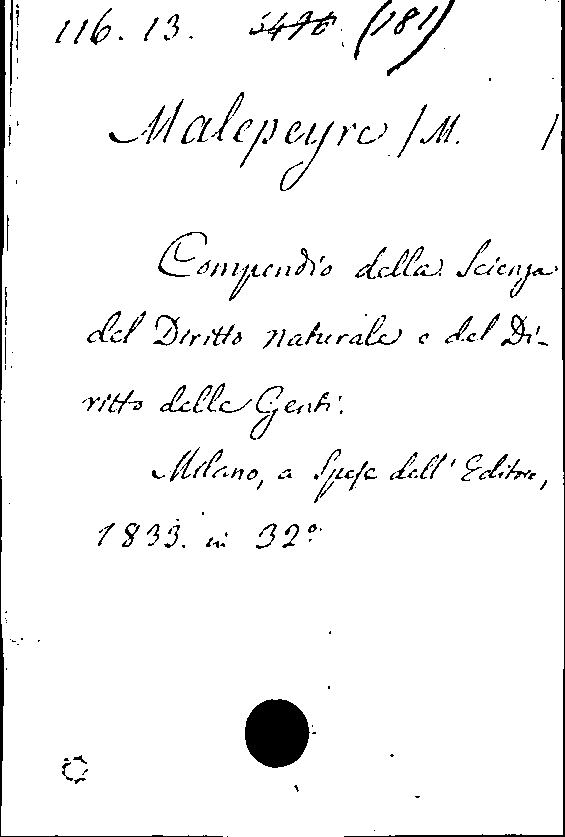 116. 13. (181)
Malepeyre /M. /
Compendio della Scienza
del Diritto naturale e del Di-
ritto delle Genti.
Milano, a Spese dell' Editore,
1833. in 32º